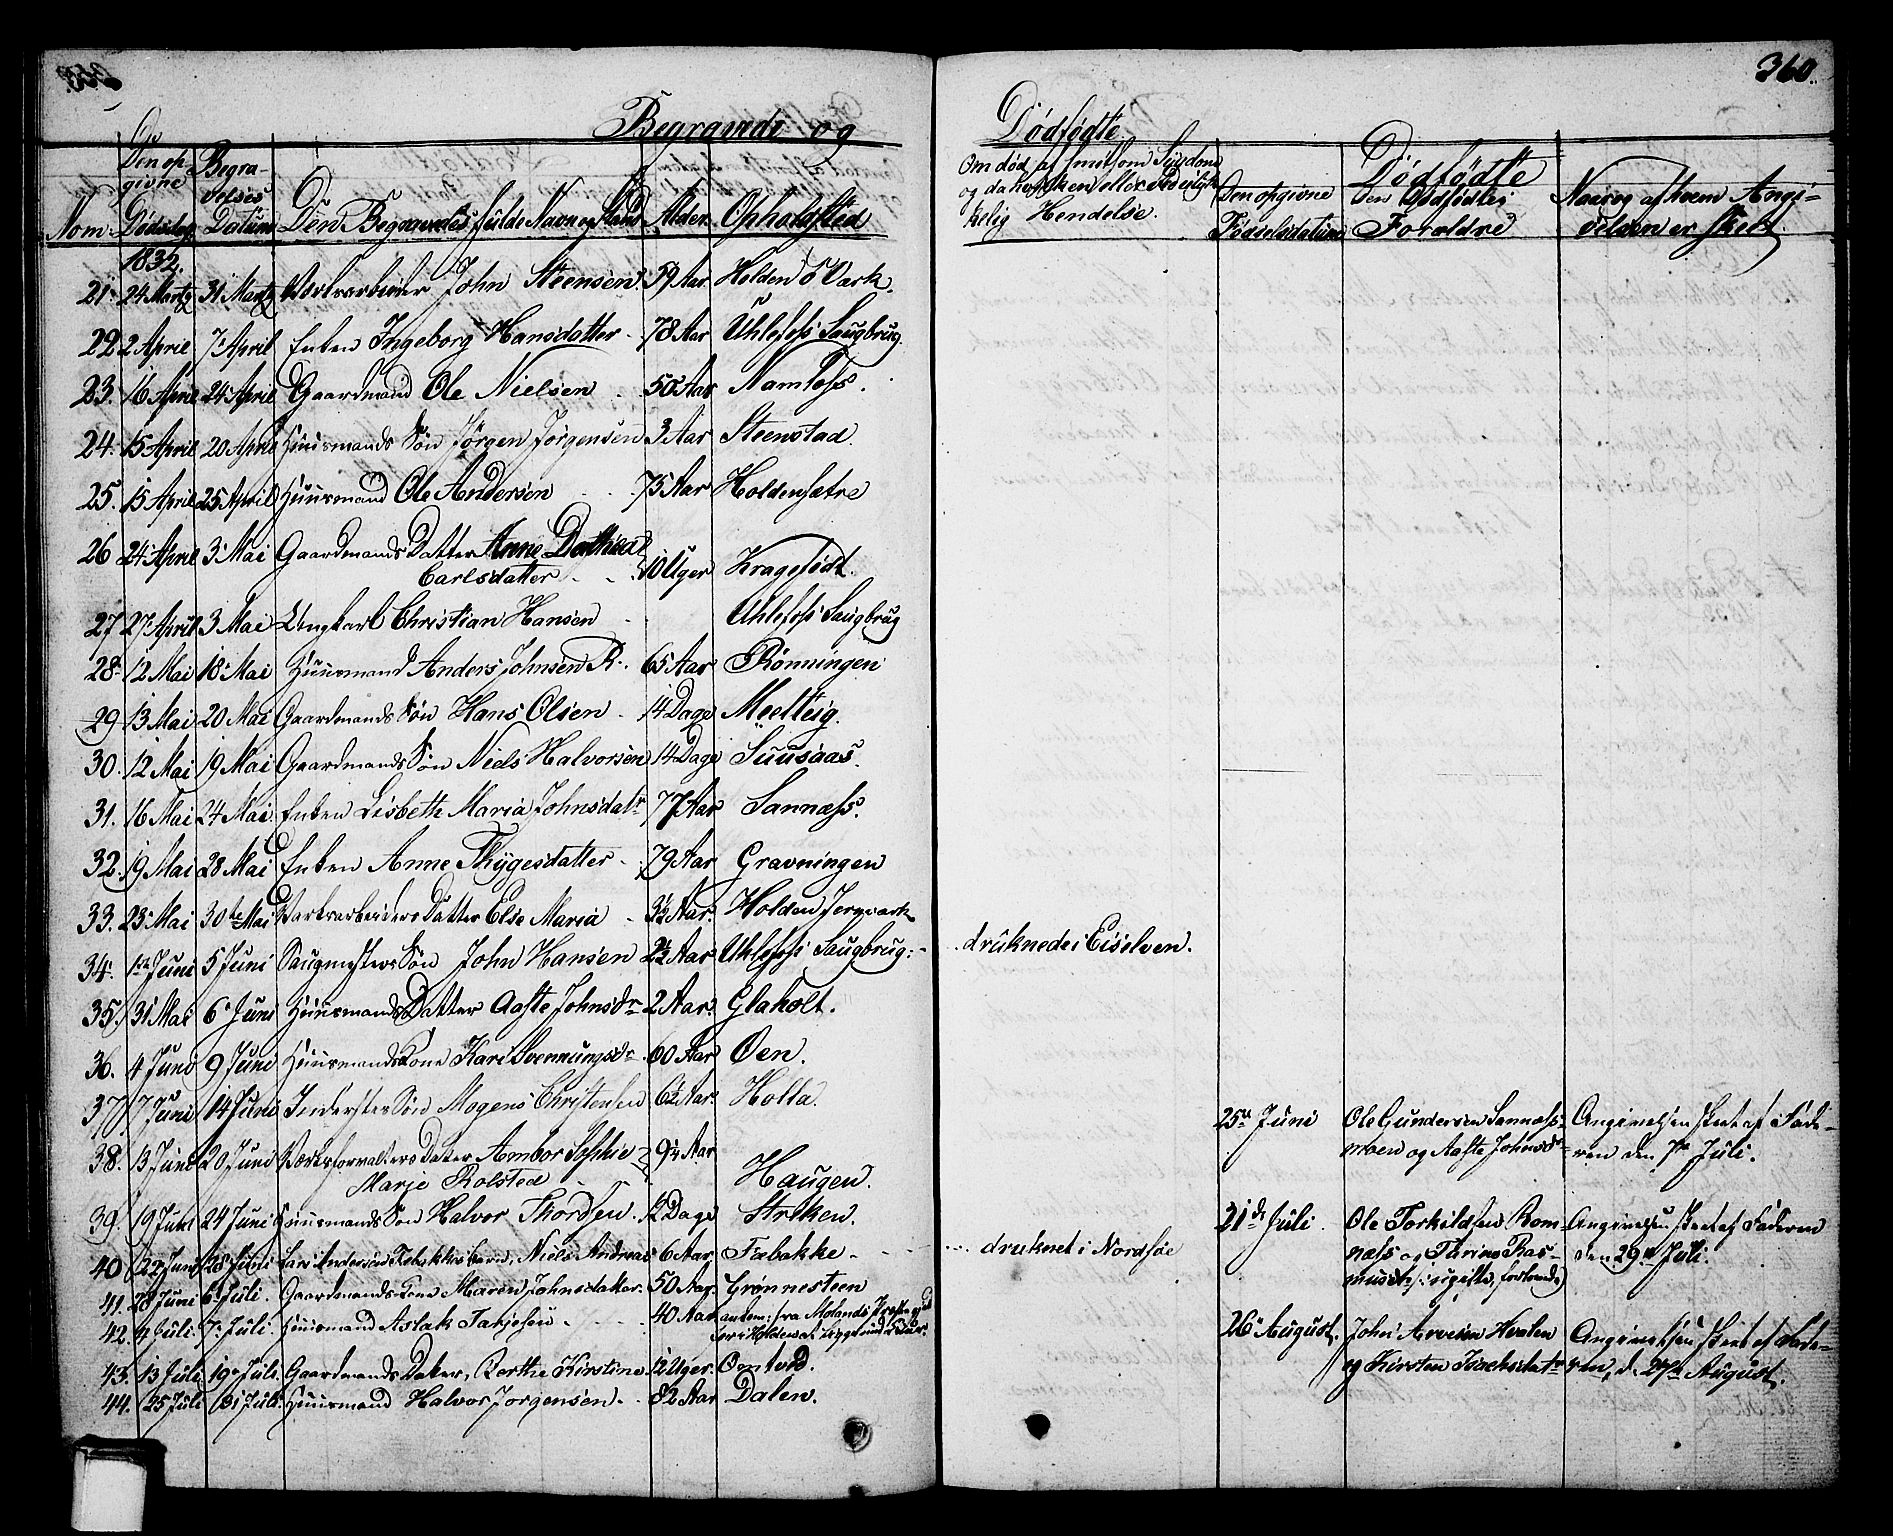 360.
Begravede og Dødfødte.
Nom: Den opgivne Dødsdag Begravelses Datum Den Begravedes fulde Navn og Stand Alder Opholdssted
Om død af smitsom Sygdom og da hvilken eller ved ulykkelig Hendelse.
Dødfødte
Den opgivne Fødselsdatum Den Dødfødtes Forældre Naar og af hvem Angivelsen er skeet
1832.
21. 24 Martz 31 Martz Værksarbeider John Steensen 59 Aar Holden Værk.
22 2 April 7 April Enken Ingeborg Hansdatter 78 Aar Uhlefoss Saugbrug
23. 16 April 24 April Gaardmand Ole Nielsen 50 Aar Namløss.
24. 15 April 20 April Huusmands Søn Jørgen Jørgensen 3 Aar Steenstad.
25. 15 April 25 April Huusmand Ole Andersen 75 Aar Holdensætre
26 24 April 3 Mai Gaardmands Datter Anne Dorthea
Carlsdatter 10 Uger Kragesødt.
27 27 April 3 Mai Ungkarl Christian Hansen Uhlefoss Saugbrug
28. 12 Mai 18 Mai Huusmand Anders Johnsen R. 65 Aar Rønningen
29 13 Mai 20 Mai Gaardmands Søn Hans Olsen 14 Dage Meelteig.
30. 12 Mai 19 Mai Gaardmands Søn Niels Halvorsen 14 Dage Suusaas.
31. 16 Mai 24 Mai Enken Lisbeth Maria Johnsdatr 77 Aar Sannæss.
32. 19 Mai 28 Mai Enken Anne Thygesdatter 79 Aar Gravningen
33. 23 Mai 30te Mai Værksarbeiders Datter Else Maria 3½ Aar. Holden Jernværk
34. 1te Juni 5 Juni Saugmesters Søn John Hansen 2½ Aar Uhlefoss Saugbrug druknede i Eiselven.
35. 31 Mai 6 Juni Huusmands Datter Aaste Johnsdr 2 Aar. Glaholt.
36. 4 Juni 9 Juni Huusmands Kone Kari Svennungsdr 60 Aar Oen.
37. 7 Juni 14 Juni Inderstes Søn Mogens Christensen 6½ Aar. Holta.
38. 13 Juni 20 Juni Værksforvalters Datter Ambor Sophie 9¼ Aar
Marie Rolsted Haugen.
39. 19 Juni 24 Juni Huusmands Søn Halvor Thordsen 12 Dage Striken.
40 22 Juni 28 Juni Lars Andersens Barn, Niels Andreas 6 Aar Fæbakke druknet i Nordsøe
41. 28 Juni 6 Juli. Gaardmands Kone Maren Johnsdatter. 50 Aar. Grønnesteen
42. 4 Juli. 7 Juli. Huusmand Aslak Tarjesen 40 Aar fra Molands
43. 13 Juli 19 Juli. Gaardmands Datter, Berthe Kirstine 12 Uger. Omtved.
44. 25 Juli 31 Juli. Huusmand Halvor Jørgensen 82 Aar Dalen.
25de Juni Ole Gundersen Sannæss- Angivelsen skeet af Fade-
moen og Aaste Johnsdr ren den 1ste Juli.
21de Juli. Ole Torkildsen Rom- Angivelsen skeet af Faderen
næss og Karine Ras- den 29de Juli.
musdr (: ugifte, forlovede)
26 August. John Arvesen Hvalen Angivelsen skeet af Fade-
og Kirsten Isachsdatr ren, d. 27de August.